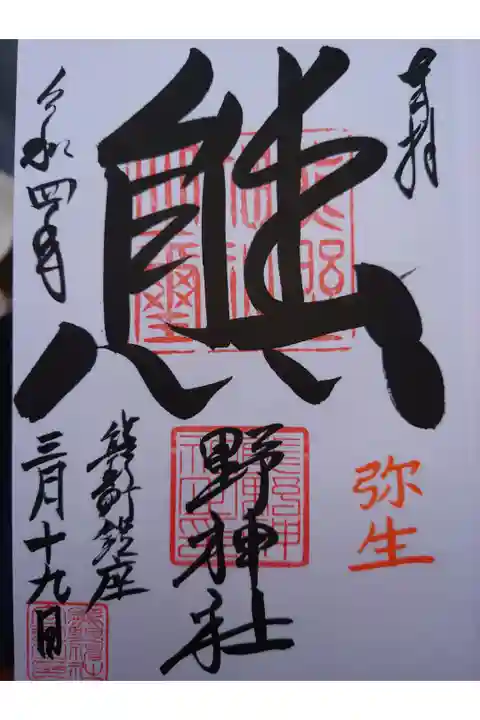 奉拝
弥生
熊
野神社
熊野町鎮座
令和四年
三月十九日